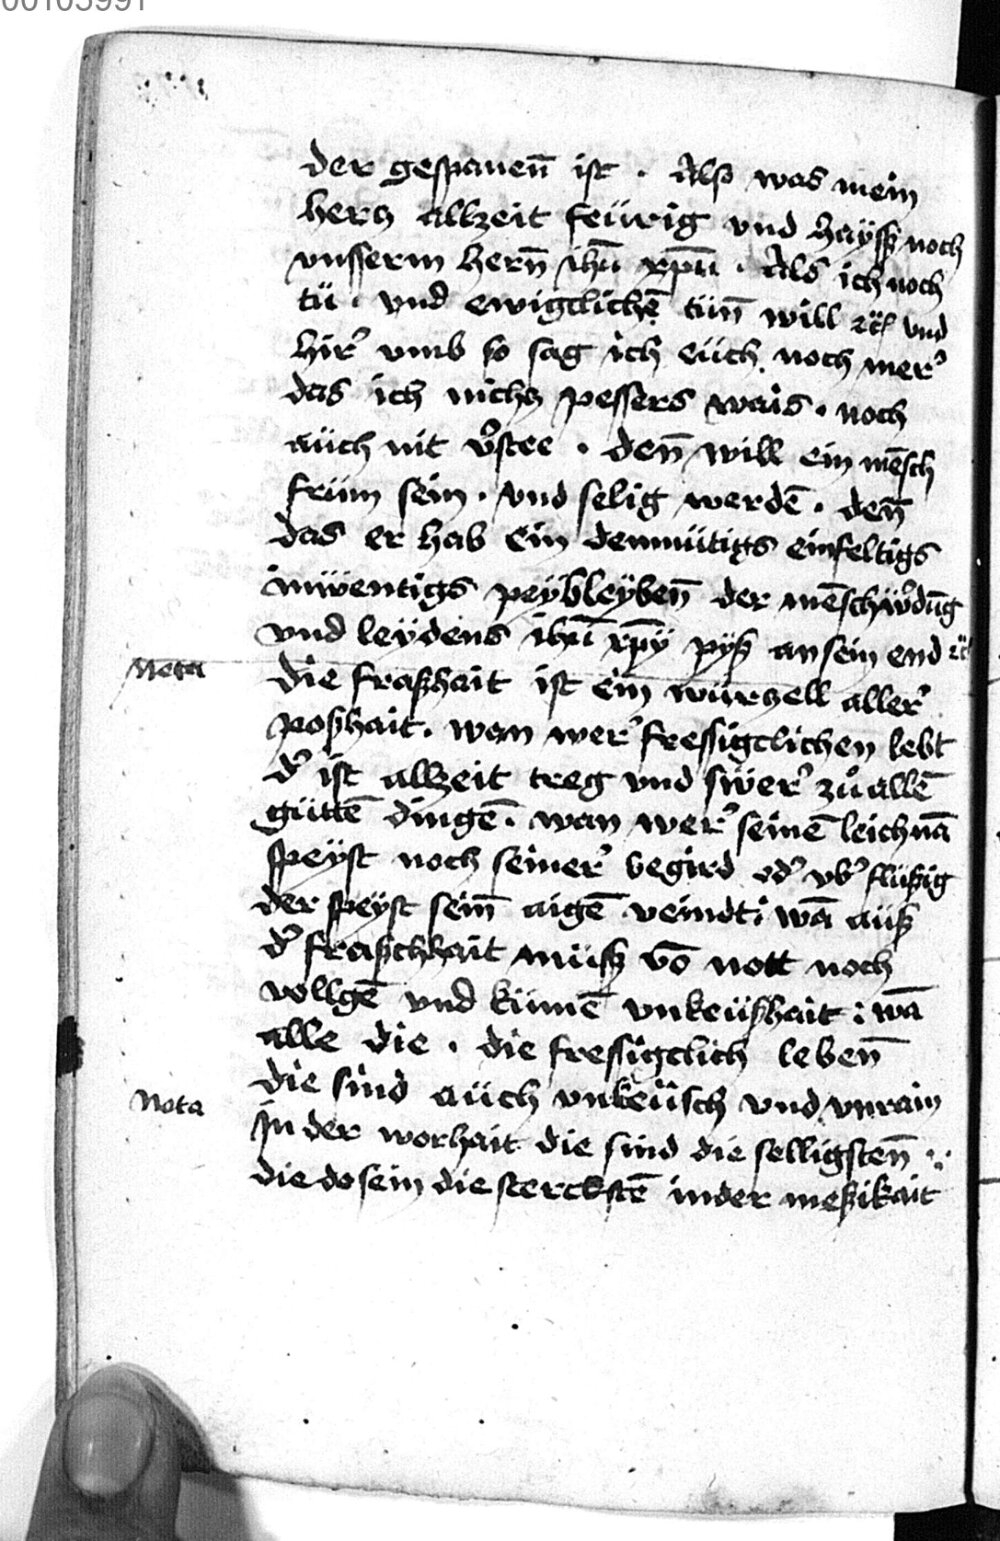 00103991
der gespanen̄ ist . Also was mein
hercz allzeit feürig vnd hayss noch
vnsserm hern̄ ihū xpū . Als ich noch
tü . vnd ewigclichē tün̄ will ꝛc̈ vnd
hir' vmb so sag ich eüch noch mer'
das ich nichcz pessers wais . noch
aüch nit v'stee . den̄ will ein mēsch
früm sein . vnd selig werdē . den̄
das er hab ein demmütigs einfeltigs
inwentigs peÿbleÿben̄ der mēschw'dūg
vnd leÿdens ihū xpÿ pÿß an sein end ꝛc̈
Nota
die fraßhait ist ein würczell aller'
poßhait . wan wer' fressigclichen lebt
d' ist allzeit treg vnd swer' zů allē
güttē dingē . wan wer' seinē leichnā
speÿst noch seiner' begird od' vb'flüßig
der speÿst sein̄ aigē veindt : wā aüß
d' fraßchhait müß vō nott noch
vollgē vnd kümē vnkeüßhait : wā
alle die . die fressigclich leben̄
die sind aüch vnkeüsch vnd vnrain
Nota
In der worhait die sind die selligsten̄
die do sein die sterckstē in der meßikait